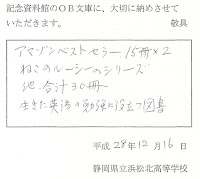 記念資料館のOB文庫に、大切に納めさせて
いただきます。
敬具
アマゾンベストセラー 15冊×2
ねこのルーシーのシリーズ
他 合計30冊
生きた英語の勉強に役立つ図書
平成 28年12月16日
静岡県立浜松北高等学校